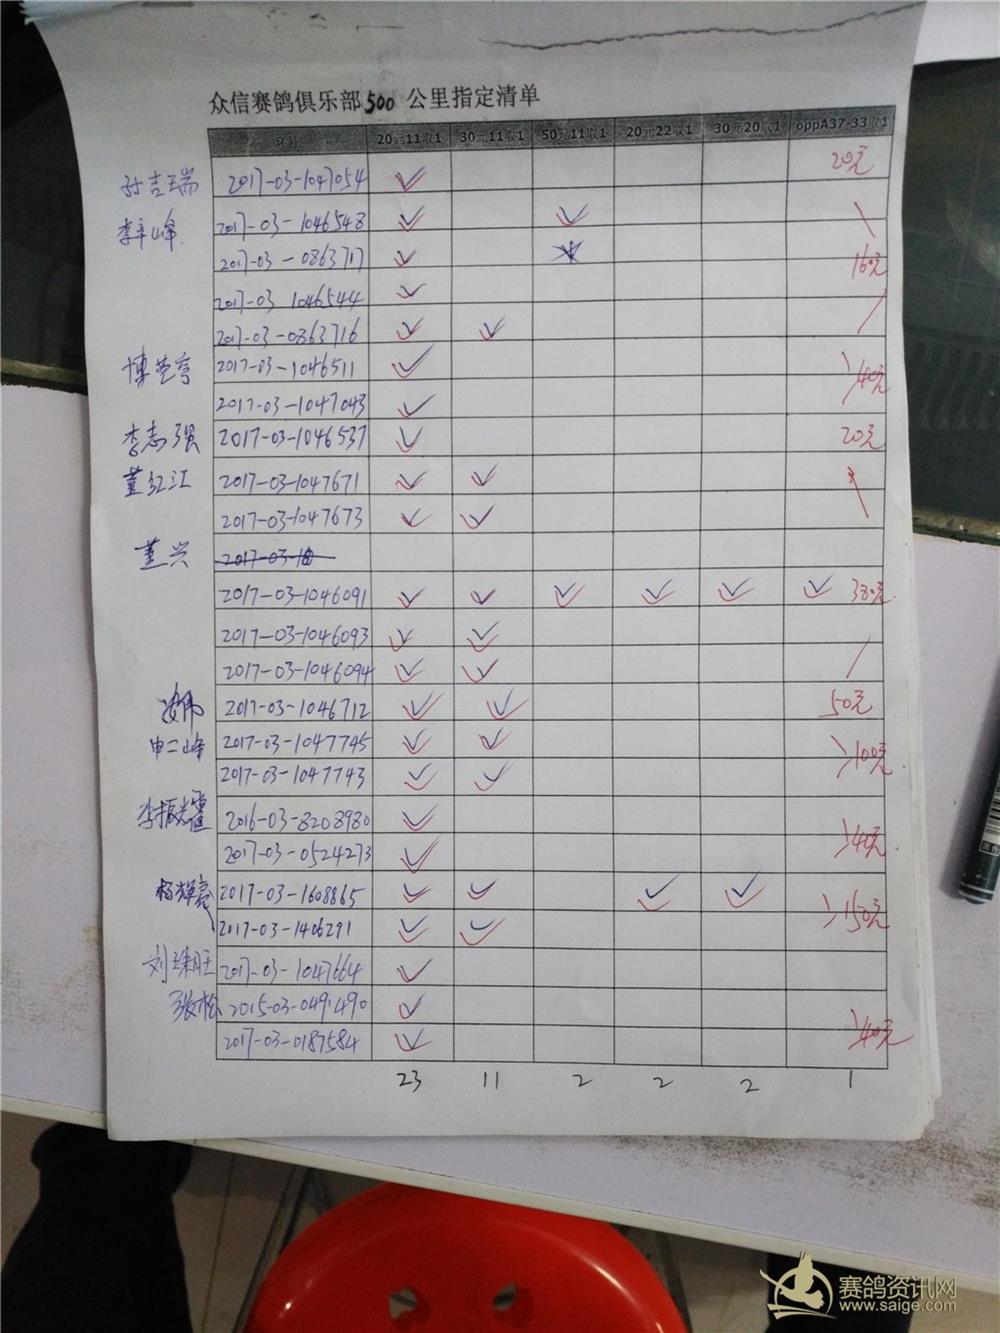 众信赛鸽俱乐部500公里指定清单
环号 20元11取1 30元11取1 50元11取1 20元22取1 30元20取1 oppA37-33取1
孙吉瑞 2017-03-1047054 20元
李辛峰 2017-03-1046548
2017-03-0863717 160元
2017-03 1046544
2017-03-0863716
2017-03-1046511 40元
2017-03-1047043
李志强 2017-03-1046537 20元
董红江 2017-03-1047671
2017-03-1047673
董兴 2017-03-10
2017-03-1046091 380元
2017-03-1046093
2017-03-1046094
2017-03-1046712 50元
申二峰 2017-03-1047745 100元
2017-03-1047743
2016-03-8208980
2017-03-0524273 40元
杨辉亮 2017-03-1608865 150元
2017-03-1406291
2017-03-1047664
张松 2015-03-0491490
2017-03-0187584 40元
23 11 2 2 2 1
赛鸽资讯网
www.saige.com